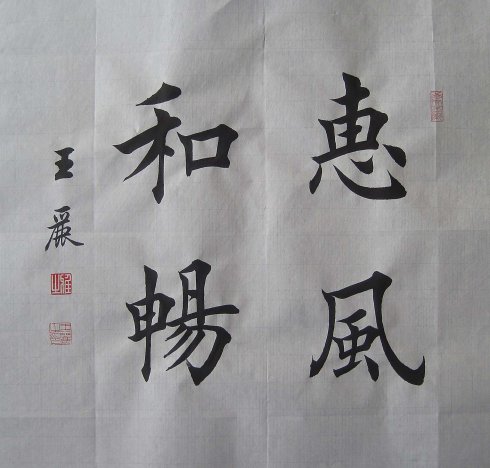 惠風
和暢
王丽